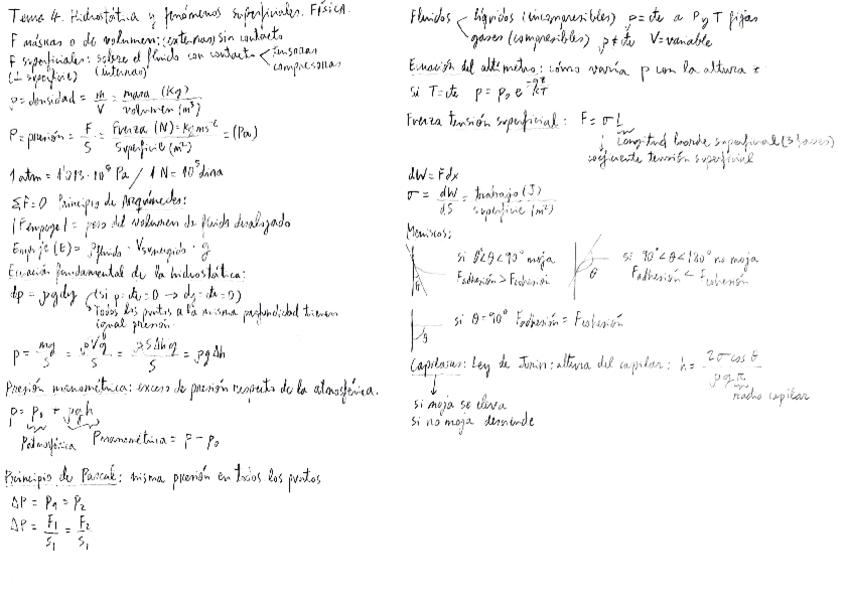 Tema 4. Hidrostática y fenómenos superficiales. FÍSICA.
F másicas o de volumen: (externas) sin contacto
F superficiales: sobre el fluido con contacto < tensoras
compresoras
(⊥ superficie) (internas)
ρ = densidad = m/V = masa (Kg)/volumen (m³)
P = presión = F/S = Fuerza (N) = Kg m s⁻²/Superficie (m²) = (Pa)
1 atm = 1'013·10⁵ Pa / 1 N = 10⁵ dina
ΣF = 0 Principio de Arquímedes:
|F empuje| = peso del volumen de fluido desalojado
Empuje (E) = ρ fluido · V sumergido · g
Ecuación fundamental de la hidrostática:
dp = ρgdy (si p = cte = 0 → dy = cte = 0)
Todos los puntos a la misma profundidad tienen
igual presión
p = mg/S = ρVg/S = ρSΔhg/S = ρgΔh
Presión manométrica: exceso de presión respecto de la atmosférica.
p = p₀ + ρgh
Patmosférica Pmanométrica = p - p₀
Principio de Pascal: misma presión en todos los puntos
ΔP = P₁ = P₂
ΔP = F₁/S₁ = F₂/S₁
Fluidos < líquidos (incompresibles) ρ = cte a P y T fijas
gases (compresibles) ρ ≠ cte V = variable
Ecuación del altímetro: cómo varía p con la altura z
si T = cte p = p₀ e
Fuerza tensión superficial: F = σ l
longitud borde superficial (3 fases)
coeficiente tensión superficial
dW = Fdx
σ = dW/dS = trabajo (J)/superficie (m²)
Meniscos:
si 0°<θ<90° moja
Fadhesión > Fcohesión
θ
si 90°<θ<180° no moja
Fadhesión < Fcohesión
θ
si θ = 90° Fadhesión = Fcohesión
θ
Capilares: Ley de Jurin: altura del capilar: h = 2σ cos θ/ρgr
radio capilar
si moja se eleva
si no moja desciende